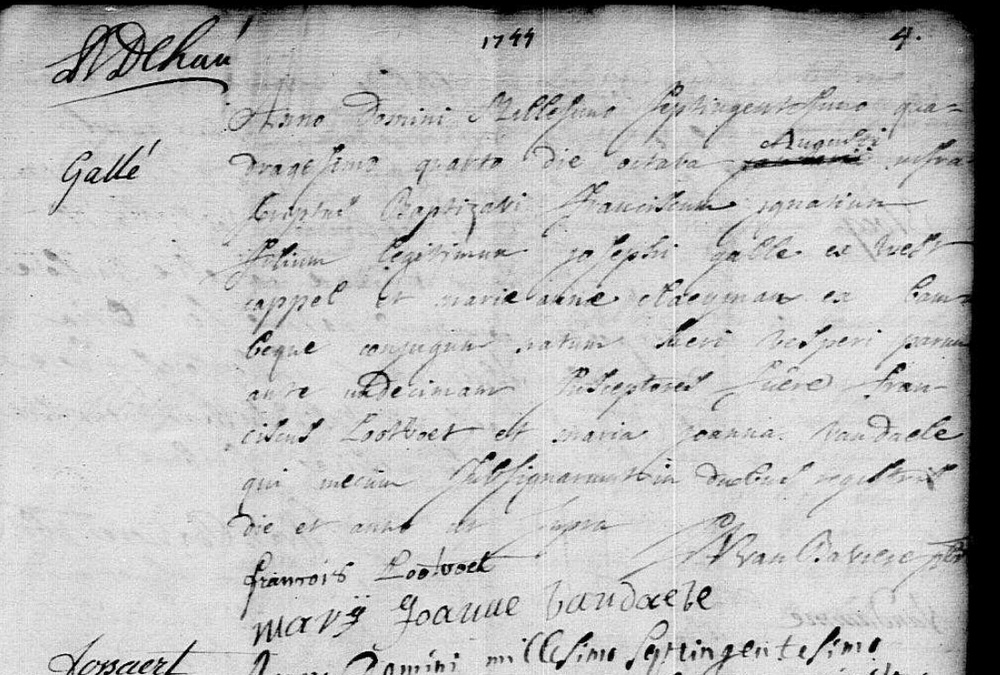 1744 4.
Gallé
Anno Domini Millesimo septingentesimo qua-
dragesimo quarto die octava Augusti infra
scriptus Baptizavi franciscum ignatium
filium legitimum josephi galle ex West
cappel et marie anne ex bam-
beque conjugum natum heri vesperi parum
ante undecimam susceptores fuêre fran-
ciscus Lootvoet et maria joanna vandaele
qui mecum subsignarunt in duobus registris
die et anno ut supra
van Baviere
francois Lootvoet
marÿ Joanne vandaele
Anno Domini millesimo septingentesimo